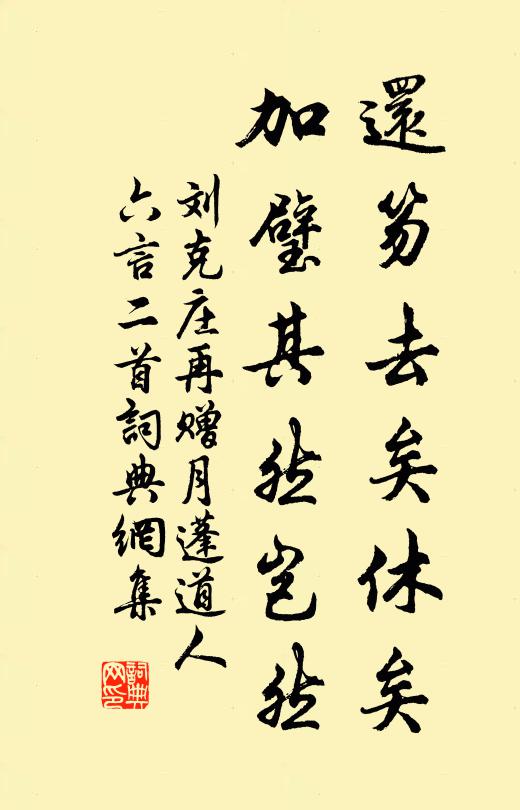 還笏去矣休矣
加璧其然豈然
刘克庄再赠月蓬道人
六言二首詞典網集
詞典
网印